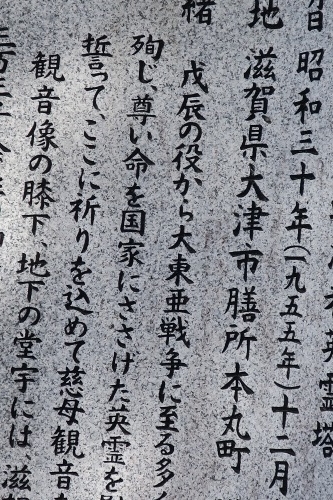 英霊塔
日 昭和三十年（一九五五年）十二月
地 滋賀県大津市膳所本丸町
緒
戊辰の役から大東亜戦争に至る多く
殉じ、尊い命を国家にささげた英霊を
誓って、ここに祈りを込めて慈母観音
観音像の膝下、地下の堂宇には、滋